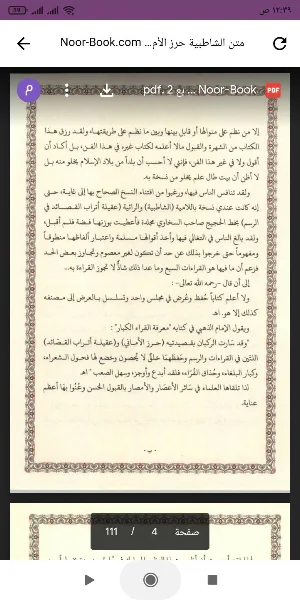 ١٢:٣٩ ص
متن الشاطبية حرز الأم... Noor-Book.com
Noor-Book ... بع 2 .pdf
PDF
P
إلا من نظم على منوالها أو قابل بينها وبين ما نظم على طريقتها، ولقد رزق هذا
الكتاب من الشهرة والقبول مالا أعلمه لكتاب غيره في هذا الفن، بل أكاد أن
أقول ولا في غير هذا الفن، فإنني لا أحسب أن بلدا من بلاد الإسلام يخلو منه بل
لا أظن أن بيت طالب علم يخلو من نسخة به.
ولقد تنافس الناس فيها، ورغبوا من اقتناء النسخ الصحاح بها إلى غاية، حتى
إنه كانت عندي نسخة باللامية (الشاطبية) والرائية (عقيلة أتراب القصائد في
الرسم) بخط الحجيج صاحب السخاوي مجلدة فأعطيت بوزنها فضة فلم أقبل،
ولقد بالغ الناس في التغالي فيها وأخذ أقوالها مسلمة واعتبار ألفاظها منطوقاً
ومفهوماً حتى خرجوا بذلك عن حد أن تكون لغير معصوم وتجاوز بعض الحد
فزعم أن ما فيها هو القراءات السبع وما عدا ذلك شاذ لا تجوز القراءة به..
إلى أن قال -رحمه الله تعالى- :
ولا أعلم كتاباً حفظ وعُرض في مجلس واحد وتسلسل بالعرض إلى مصنفه
كذلك إلا هو. اهـ
ويقول الإمام الذهبي في كتابه "معرفة القراء الكبار":
"وقد سارت الركبان بقصيدتيه (حرز الأماني) و(عقيلة أتراب القصائد)
اللتين في القراءات والرسم وحفظهما خلق لا يُحصون وخضع لها فحول الشعراء،
وكبار البلغاء، وحذاق القراء، فلقد أبدع وأوجز وسهل الصعب" اهـ
لذا تلقاها العلماء في سائر الأعصار والأمصار بالقبول الحسن وعُنوا بها أعظم
عناية.
- ب -
صفحة 4 / 111